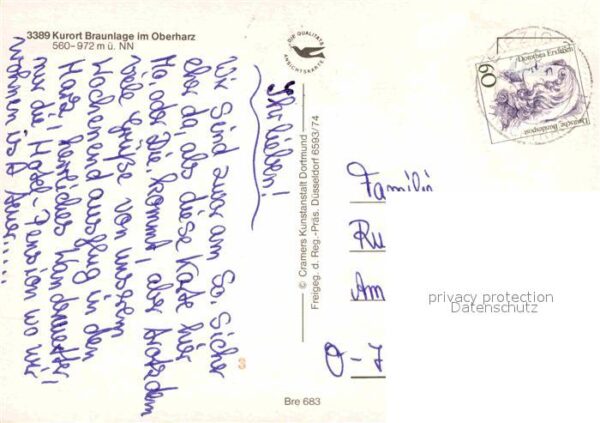 3389 Kurort Braunlage im Oberharz
560–972 m ü. NN
DIE QUALITÄTS
ANSICHTSKARTE
Ihr Lieben!
Wir sind zwar am So. sicher
eher da, als diese Karte hier
Mo. oder Die. kommt, aber trotzdem
viele Grüße von unserem
Wochenendausflug in den
Harz! herrliches Wanderwetter!
nur die Hotel-Pension wo wir
wohnen ist teuer.....
© Cramers Kunstanstalt Dortmund
Freigeg. d. Reg.-Präs. Düsseldorf 6593/74
Bre 683
60
Dorothea Erxleben
Deutsche Bundespost
Familie
Ru
Am
O-7
privacy protection
Datenschutz